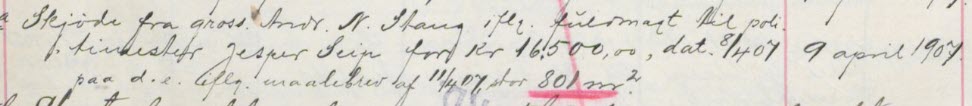 Skjøde fra gross. Andr. N. Stang iflg. fuldmagt til poli-
timester Jesper Seip for Kr 16.500,00, dat. 8/4 07 9 april 1907.
paa d. e. iflg. maalebrev af 11/4 07, stor 801 m².